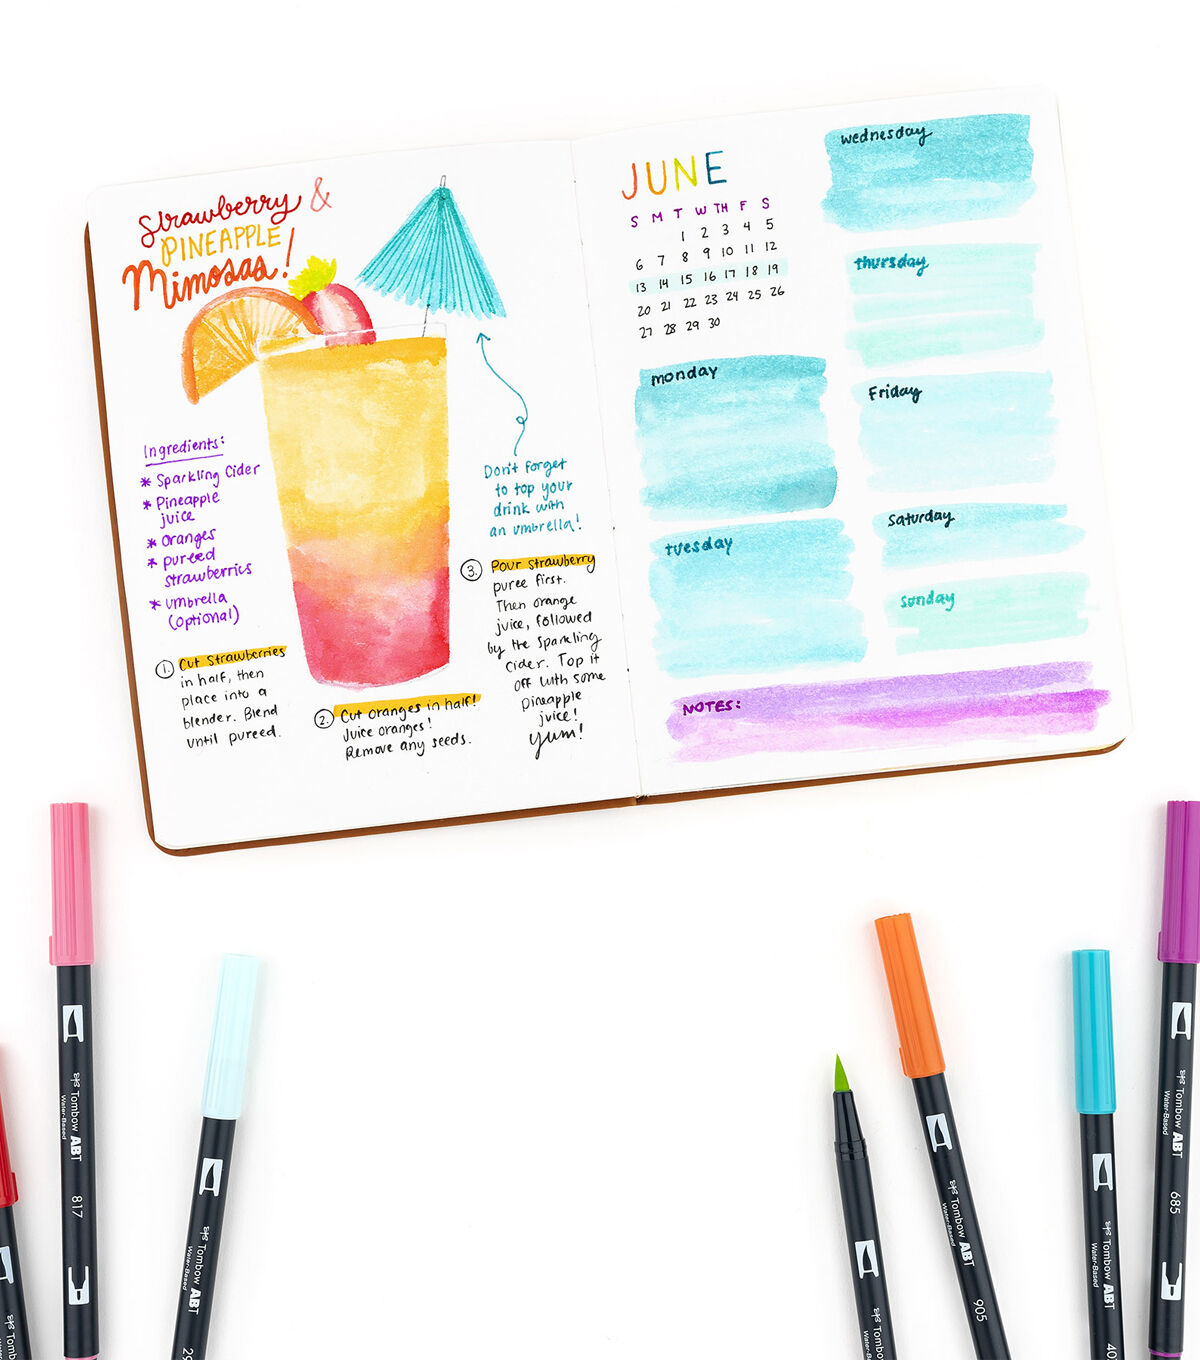 Strawberry &
PINEAPPLE
Mimosas!
Ingredients:
* Sparkling Cider
* Pineapple
juice
* oranges
* pureed
strawberries
* umbrella
(optional)
Don't forget
to top your
drink with
an umbrella!
1. Cut strawberries
in half, then
place into a
blender. Blend
until pureed.
2. Cut oranges in half!
Juice oranges!
Remove any seeds.
3. Pour strawberry
puree first.
Then orange
juice, followed
by the sparkling
cider. Top it
off with some
pineapple
juice!
yum!
JUNE
S M T W TH F S
1 2 3 4 5
6 7 8 9 10 11 12
13 14 15 16 17 18 19
20 21 22 23 24 25 26
27 28 29 30
monday
tuesday
wednesday
thursday
Friday
saturday
sunday
NOTES:
Tombow ABT
Water-Based
817
Tombow ABT
Water-Based
29
Tombow
Tombow ABT
Water-Based
905
Tombow ABT
Water-Based
40
Tombow ABT
Water-Based
685